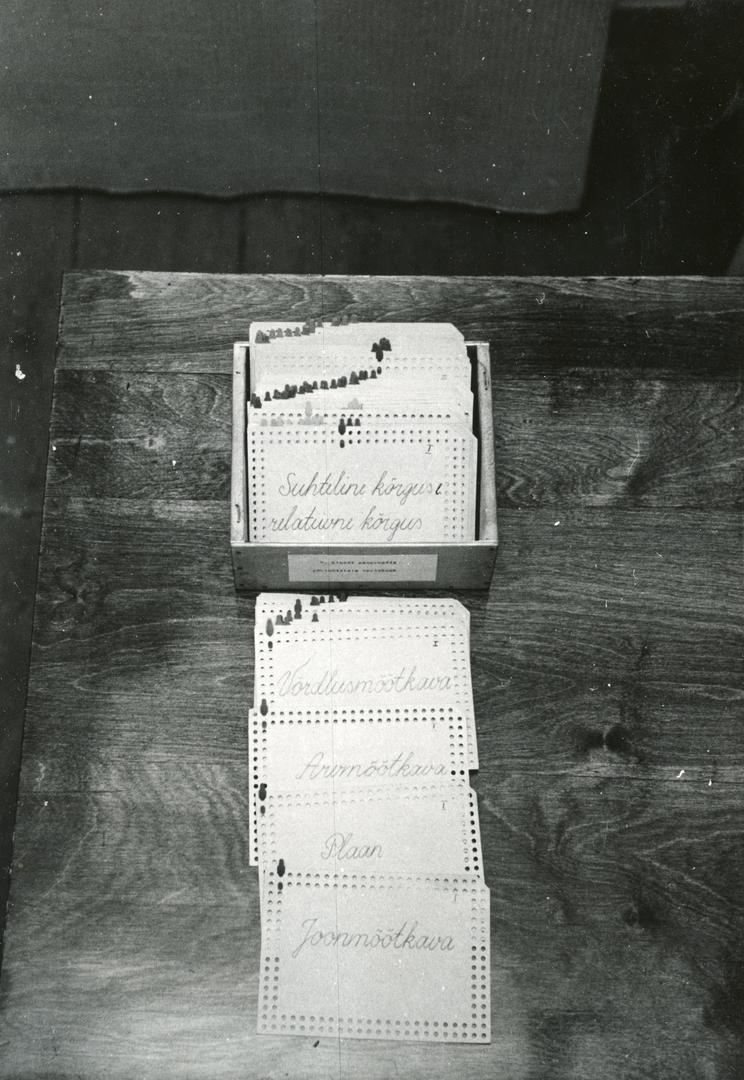 I
Suhteline kõrgus e
relatiivne kõrgus
I
Võrdlusmõõtkava
I
Arvmõõtkava
I
Plaan
I
Joonmõõtkava